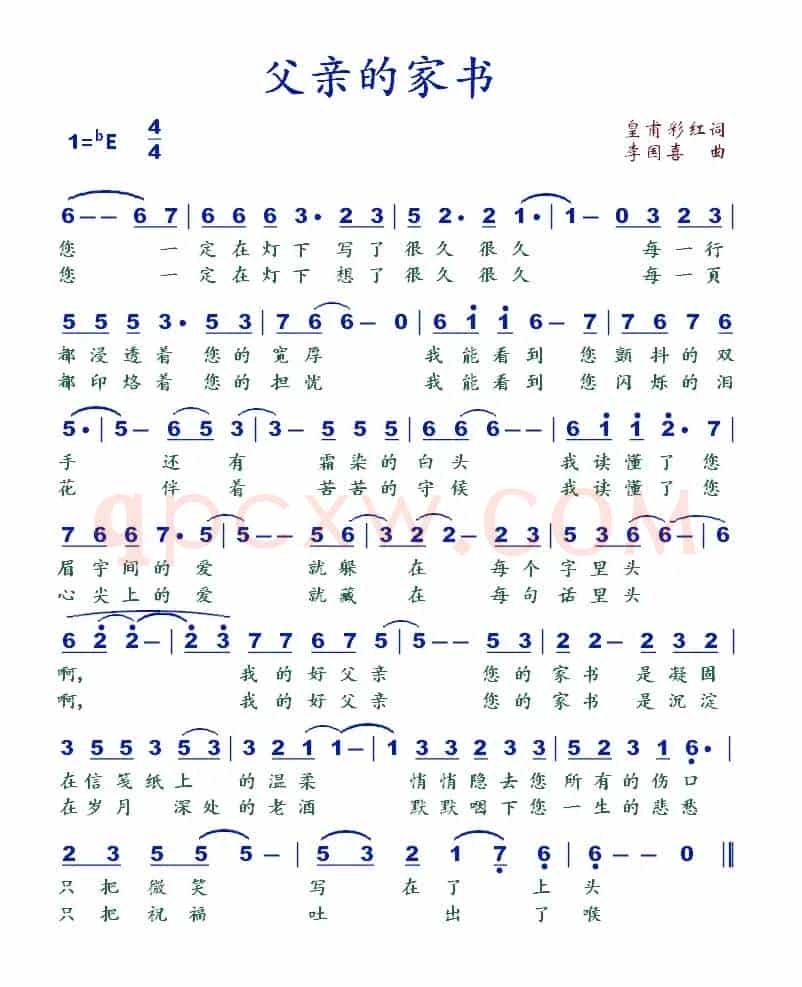 父亲的家书
1=ᵇE 4/4
皇甫彩红词
李国喜 曲
6 – – 6 7 | 6 6 6 3· 2 3 | 5 2· 2 1· | 1 – 0 3 2 3 |
您 一定在灯下 写了很久很久 每一行
您 一定在灯下 想了很久很久 每一頁
5 5 5 3· 5 3 | 7 6 6 – 0 | 6 i i 6 – 7 | 7 6 7 6
都浸透着 您的宽厚 我能看到 您颤抖的双
都印烙着 您的担忧 我能看到 您闪烁的泪
5· | 5 – 6 5 3 | 3 – 5 5 5 | 6 6 6 – | 6 i i 2· 7 |
手 还有 霜染的白头 我读懂了您
花 伴着 苦苦的守候 我读懂了您
qpcxw.com
7 6 6 7· 5 | 5 – – 5 6 | 3 2 2 – 2 3 | 5 6 3 6 – | 6
眉宇间的爱 就躲在 每个字里头
心尖上的爱 就藏在 每句话里头
6 2̇ 2̇ – | 2̇ 3̇ 7 7 6 7 5 | 5 – – 5 3 | 2 2 – 2 3 2 |
啊, 我的好父亲 您的家书 是凝固
啊, 我的好父亲 您的家书 是沉淀
3 5 5 3 5 5 3 | 3 2 1 1 – | 1 3 3 2 3 3 | 5 2 3 1 6̣· |
在信笺纸上 的温柔 悄悄隐去您所有的伤口
在岁月 深处的老酒 默默咽下您一生的悲愁
2 3 5 5 5 – | 5 3 2 1 7̣ 6̣ | 6̣ – – 0 ‖
只把微笑 写在了上头
只把祝福 吐出了喉